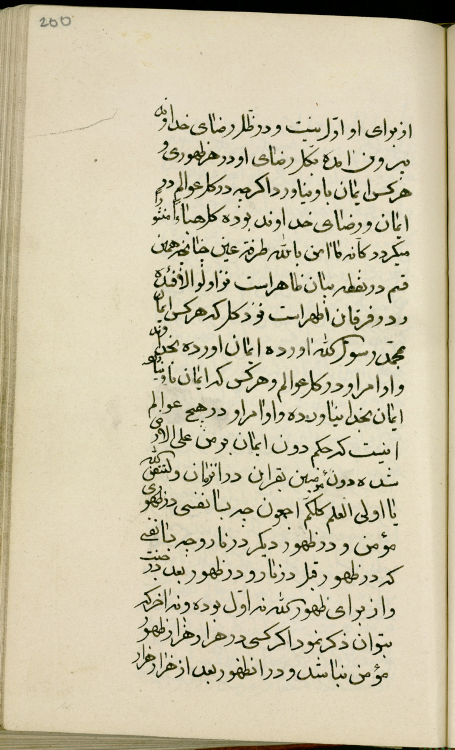 200
از برای او اول نیست و در ظل رضای خداوند
بیرون آمده بکل رضای او در هر ظهوری و
هر کس ایمان باو نیاورد اگر چه در کل عوالم در
ایمان و رضای خداوند بوده کل هباء منثورا
میگردد کانه ما امن بالله طرفة عین چنانچه همین
قسم در نقطه بیان ظاهر است نزد اولو الافئده
و در فرقان اظهر است نزد کل که هر کس ایمان
بمحمد رسول الله اورده ایمان اورده بخداوند
و اوامر او در کل عوالم و هر کس که ایمان باو نیاورده
ایمان بخدا نیاورده و اوامر او در هیچ عوالم
اینست که حکم دون ایمان بر من علی الارض
شده دون مؤمنین بقران در انزمان ولتتقن الله
یا اولی العلم کلکم اجمعون چه بسا نفسی در ظهوری
مؤمن و در ظهور دیگر در نار و چه بسا نفسی
که در ظهور قبل در نار و در ظهور بعد در جنت
و از برای ظهور الله نه اول بوده و نه اخر که
بتوان ذکر نمود اگر کسی در هزار هزار ظهور
مؤمن نباشد و در انظهور بعد از هزار هزار